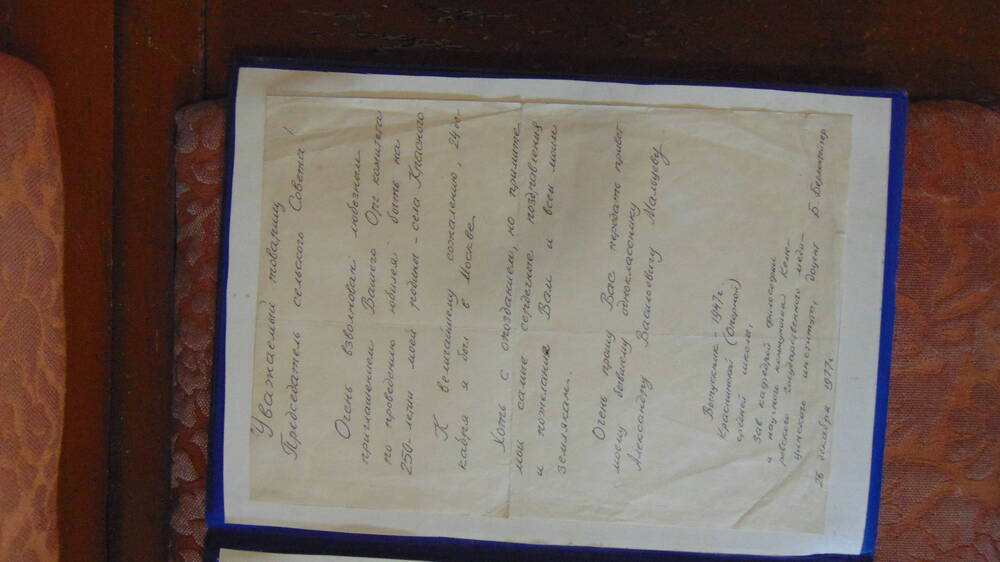 Уважаемый товарищ
Председатель сельского Совета!
Очень взволнован любезным
приглашением Вашего Орг комитета
по проведению юбилея быть на
250-летии моей родины - села Красного
К величайшему сожалению, 24 де-
кабря я был в Москве.
Хоть с опозданием, но примите
мои самые сердечные поздравления
и пожелания Вам и всем моим
землякам.
Очень прошу Вас передать привет
моему бывшему однокласснику
Александру Васильевичу Мальцеву
Выпускник - 1947г.
Краснинской (Опорной)
средней школы,
Зав кафедрой философии
и научного коммунизма Кеме-
ровского государственного меди-
цинского института, доцент Б
26 декабря 1977г.